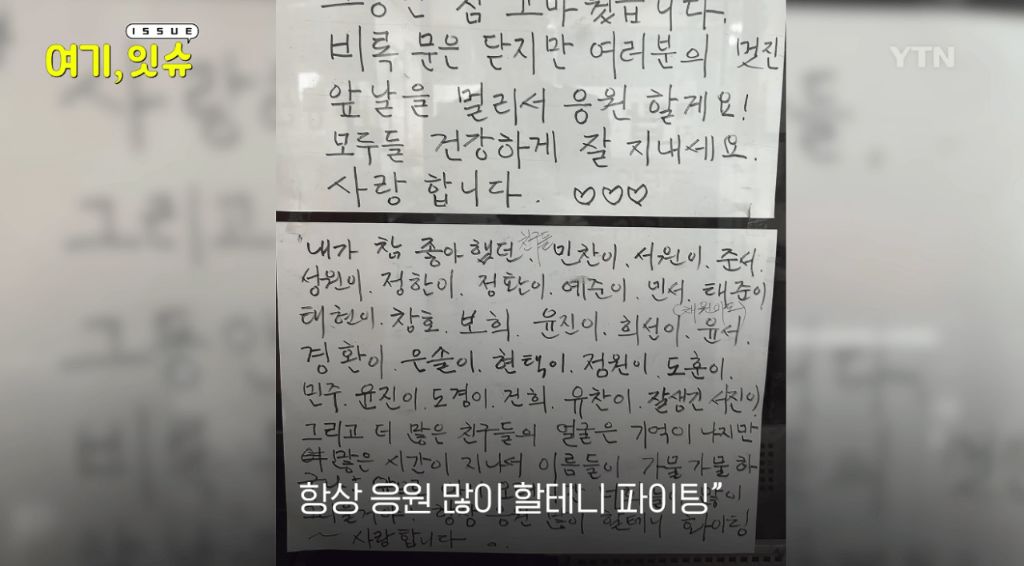 ISSUE
여기, 잇슈
YTN
비록 문은 닫지만 여러분의 멋진
앞날을 멀리서 응원 할게요!
모두들 건강하게 잘 지내세요.
사랑합니다. ♡♡♡
내가 참 좋아했던 친구들 민찬이. 서원이. 준서.
성원이. 정한이. 정환이. 예준이. 민서. 태준이
태현이. 창호. 보희. 윤진이. 희선이. 윤서.
경환이. 은솔이. 현택이. 정원이. 도훈이.
민주. 윤진이. 도경이. 건희. 유찬이. 잘생긴 서진이
그리고 더 많은 친구들의 얼굴은 기억이 나지만
많은 시간이 지나서 이름들이 가물가물하
항상 응원 많이 할테니 파이팅”
많이 할테니 화이팅
~ 사랑합니다